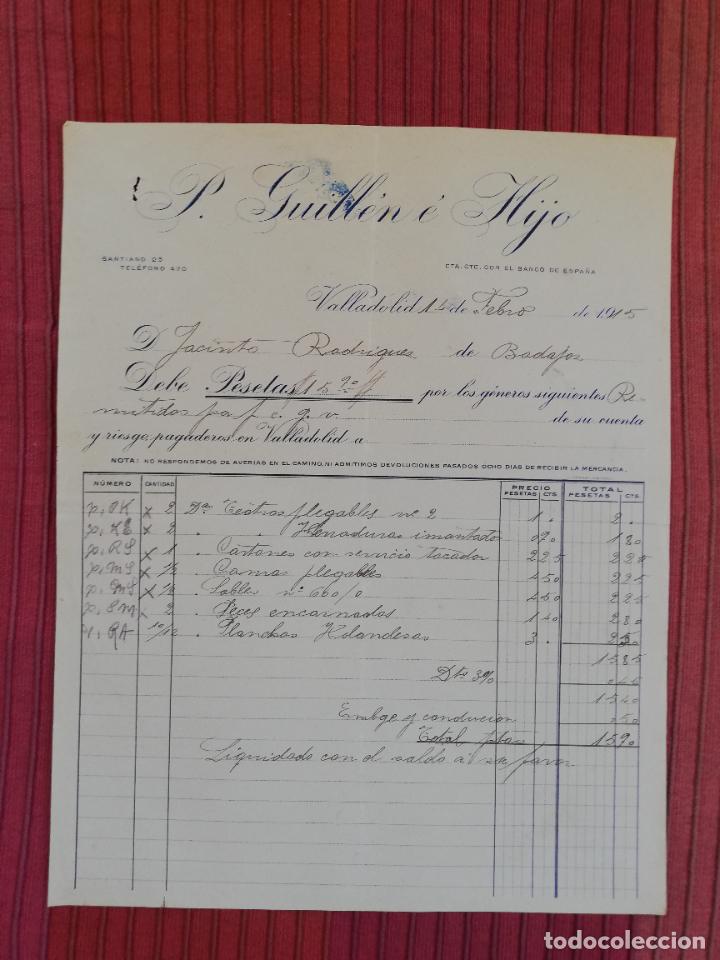 P. Guillén é Hijo
SANTIAGO 25
TELÉFONO 420
CTA. CTE. CON EL BANCO DE ESPAÑA
Valladolid 14 de Febro de 1915
D. Jacinto Rodrigues de Badajos
Debe Pesetas 15 90 por los géneros siguientes Re-
mitidos por f. c. g. v. de su cuenta
y riesgo, pagaderos en Valladolid a
NOTA: NO RESPONDEMOS DE AVERIAS EN EL CAMINO, NI ADMITIMOS DEVOLUCIONES PASADOS OCHO DIAS DE RECIBIR LA MERCANCIA.
NÚMERO CANTIDAD PRECIO TOTAL
PESETAS CTS. PESETAS CTS.
p. OK x 2 Dna Teatros plegables nº 2 1 . 2 .
2 . . Herraduras imantado 0 90 1 80
p. RS x 1 . Cartones con servicio tocador 2 25 2 25
p. MS x 1/2 . Camas plegables 4 50 2 25
p. MS x 1/2 . Sables nº 660/0 4 50 2 25
p. SM x 2 . Peces encarnados 1 40 2 80
RA 10/12 . Planchas Holandesas 3 . 2 50
15 85
Dto 3% 0 45
15 40
Embge y conducion 0 50
Total ptas 15 90
Liquidado con el saldo a su favor
todocoleccion
todocoleccion.net